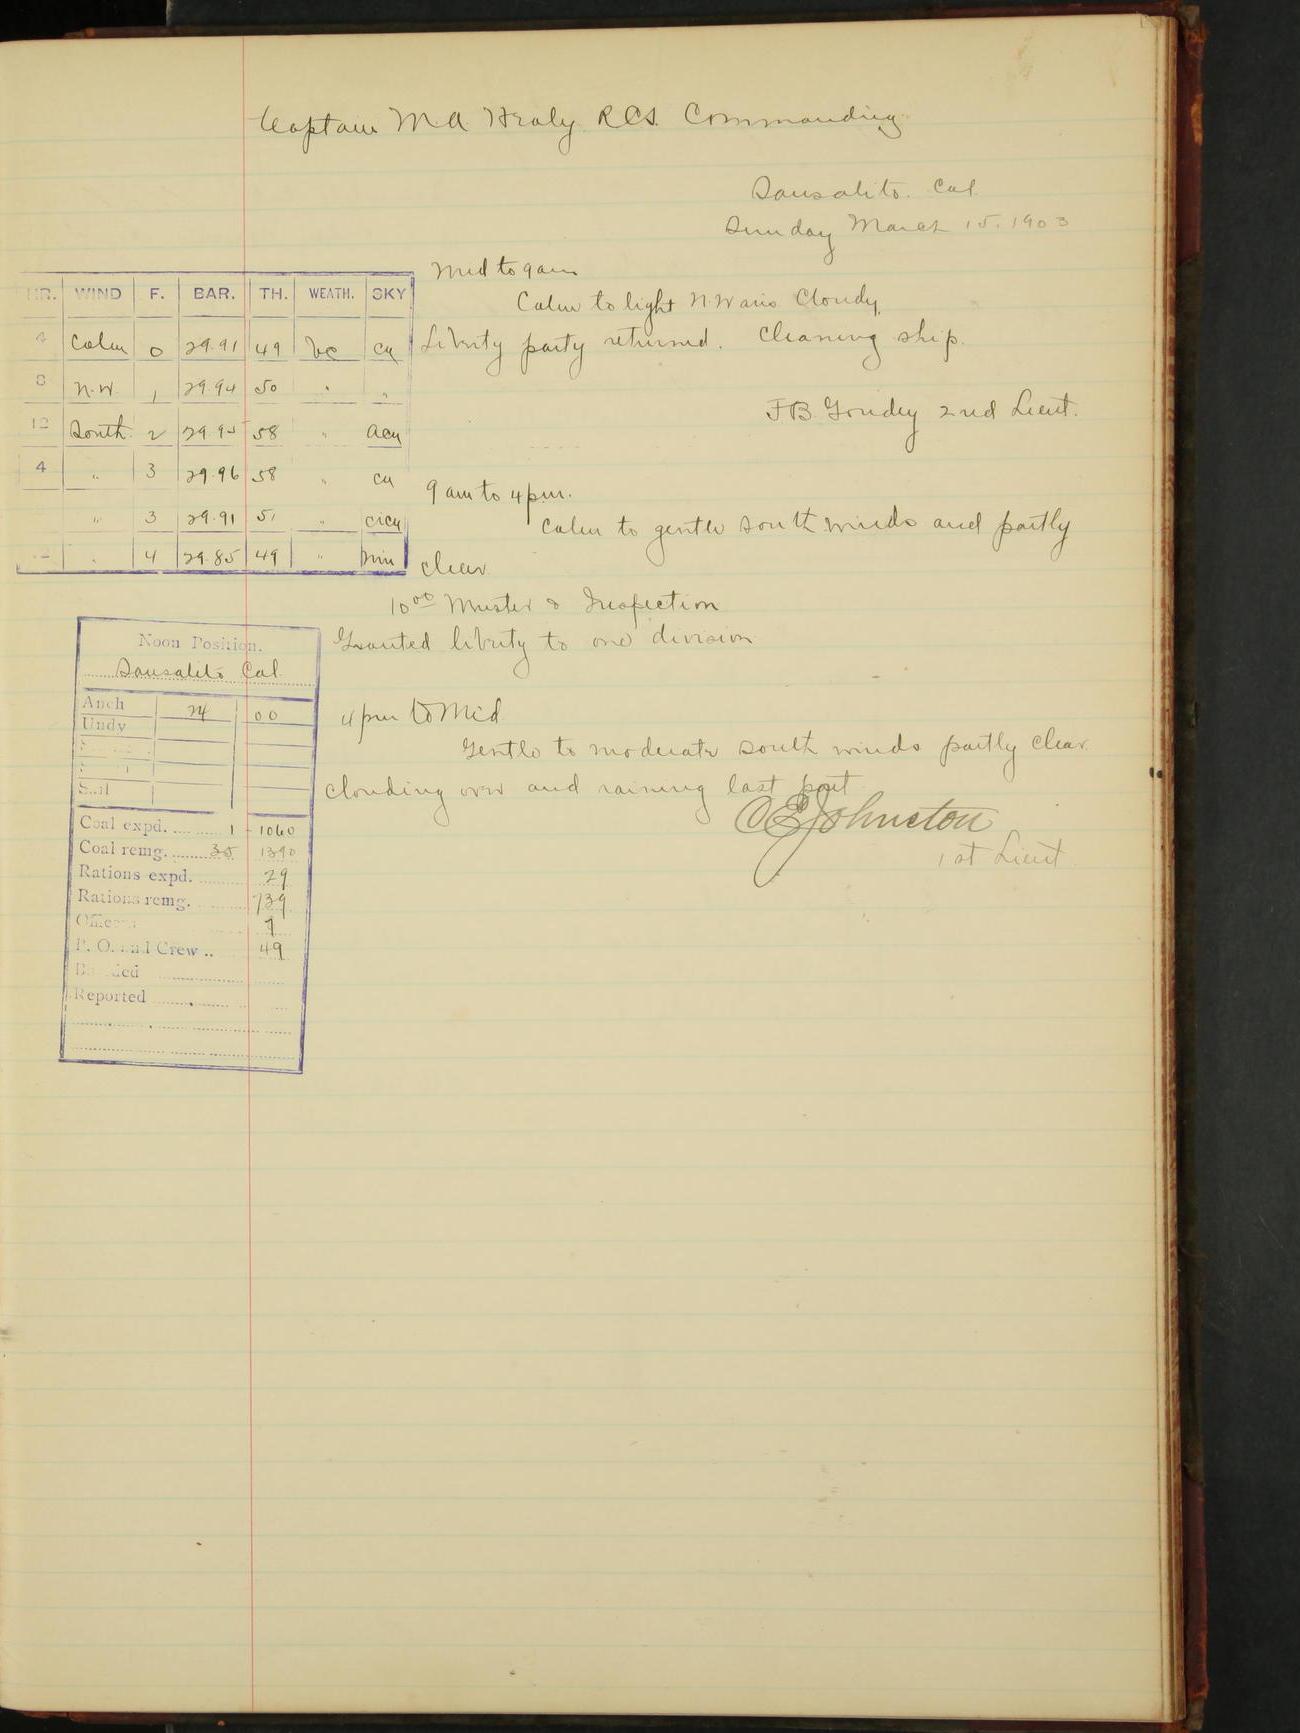 Captain M.A. Healy R.C.S. Commanding
Sausalito. Cal.
Sunday March 15. 1903
HR. WIND F. BAR. TH. WEATH. SKY
4 Calm 0 29.91 49 bc cu
8 N.W. 1 29.94 50 " "
12 South 2 29.95 58 " acu
4 " 3 29.96 58 " cu
" 3 29.91 51 " cicu
12 " 4 29.85 49 " nim
Mid to 9 am
Calm to light N.W airs Cloudy,
Liberty party returned. Cleaning ship.
2nd Lieut.
9 am to 4 pm.
Calm to gentle South winds and partly
clear
10 00 Muster & Inspection
Granted liberty to one division
4 pm to Mid
Gentle to moderate South winds partly clear
clouding over and raining last part
C E Johnston
1st Lieut
Noon Position.
Sausalito Cal.
Anch 24 00
Undy
Sail
Coal expd. .... 1 - 1060
Coal remg. .... 35 1390
Rations expd. .... 29
Rations remg. .... 739
Officers 7
P. O. and Crew .. 49
Boarded
Reported